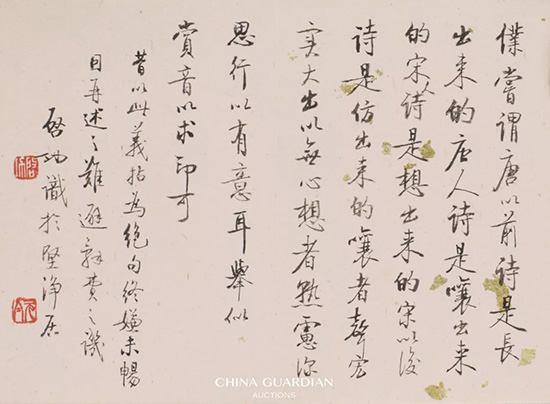 僕嘗謂唐以前詩是長
出来的唐人詩是嚷出来
的宋人詩是想出来的宋以後
詩是仿出来的嚷者聲宏
实大出以無心想者熟慮深
思行以有意耳舉似
賞音以求印可
昔以此義括為絕句終嫌未暢
因再述之難避辭費之譏
啟功識於堅淨居
CHINA GUARDIAN
AUCTIONS